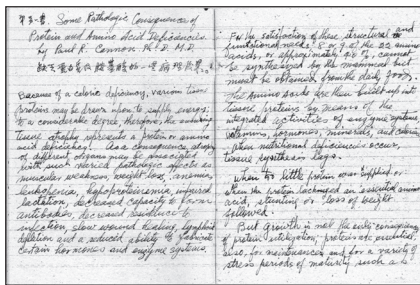 Some Pathologic Consequences of
Protein and Amino Acid Deficiencies
by Paul R. Cannon Ph.D. M.D.
Because of a caloric deficiency, various tissue
proteins may be drawn upon to supply energy;
to a considerable degree, therefore, the ensuing
tissue atrophy represents a protein or amino
acid deficiency! As a consequence, atrophy
of different organs may be associated
with such varied pathologic effects as
muscular weakness, weight loss, anemia,
leukopenia, hypoproteinemia, impaired
lactation, decreased capacity to form
antibodies, decreased resistance to
infection, slow wound healing, lymphoid
depletion and a reduced ability to fabricate
certain hormones and enzyme systems.
For the satisfaction of these structural and
functional needs, 8 or 9 of the 22 amino
acids, or approximately 40%, cannot
be synthesized by the mammal but
must be obtained from the daily food.
The amino acids are then built up into
tissue proteins by means of the
integrated activities of enzyme systems,
vitamins, hormones, minerals, and calories
when nutritional deficiencies occur,
tissue synthesis lags.
when too little protein was supplied or
when the protein lacked an essential amino
acid, stunting or loss of weight
followed.
But Growth is not the only consequence
of protein
also, for maintenance and for a variety of
stress periods of maturity such as